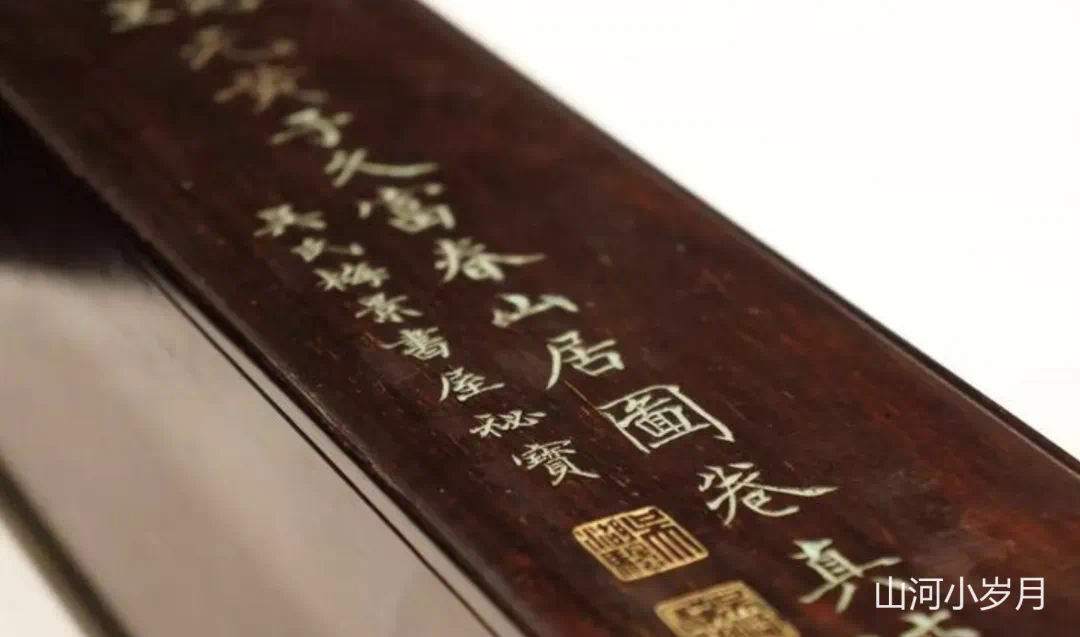 元黃子久富春山居圖卷真
吳氏梅景書屋秘寶
山河小岁月